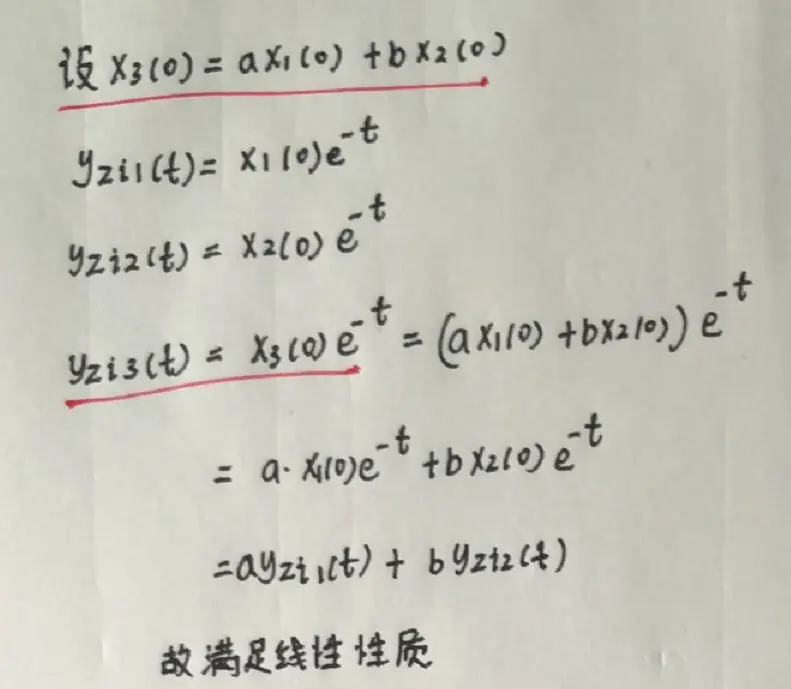 设 x₃(0) = ax₁(0) + bx₂(0)
yzi₁(t) = x₁(0)e^-t
yzi₂(t) = x₂(0)e^-t
yzi₃(t) = x₃(0)e^-t = (ax₁(0) + bx₂(0))e^-t
= a·x₁(0)e^-t + bx₂(0)e^-t
= ayzi₁(t) + byzi₂(t)
故满足线性性质